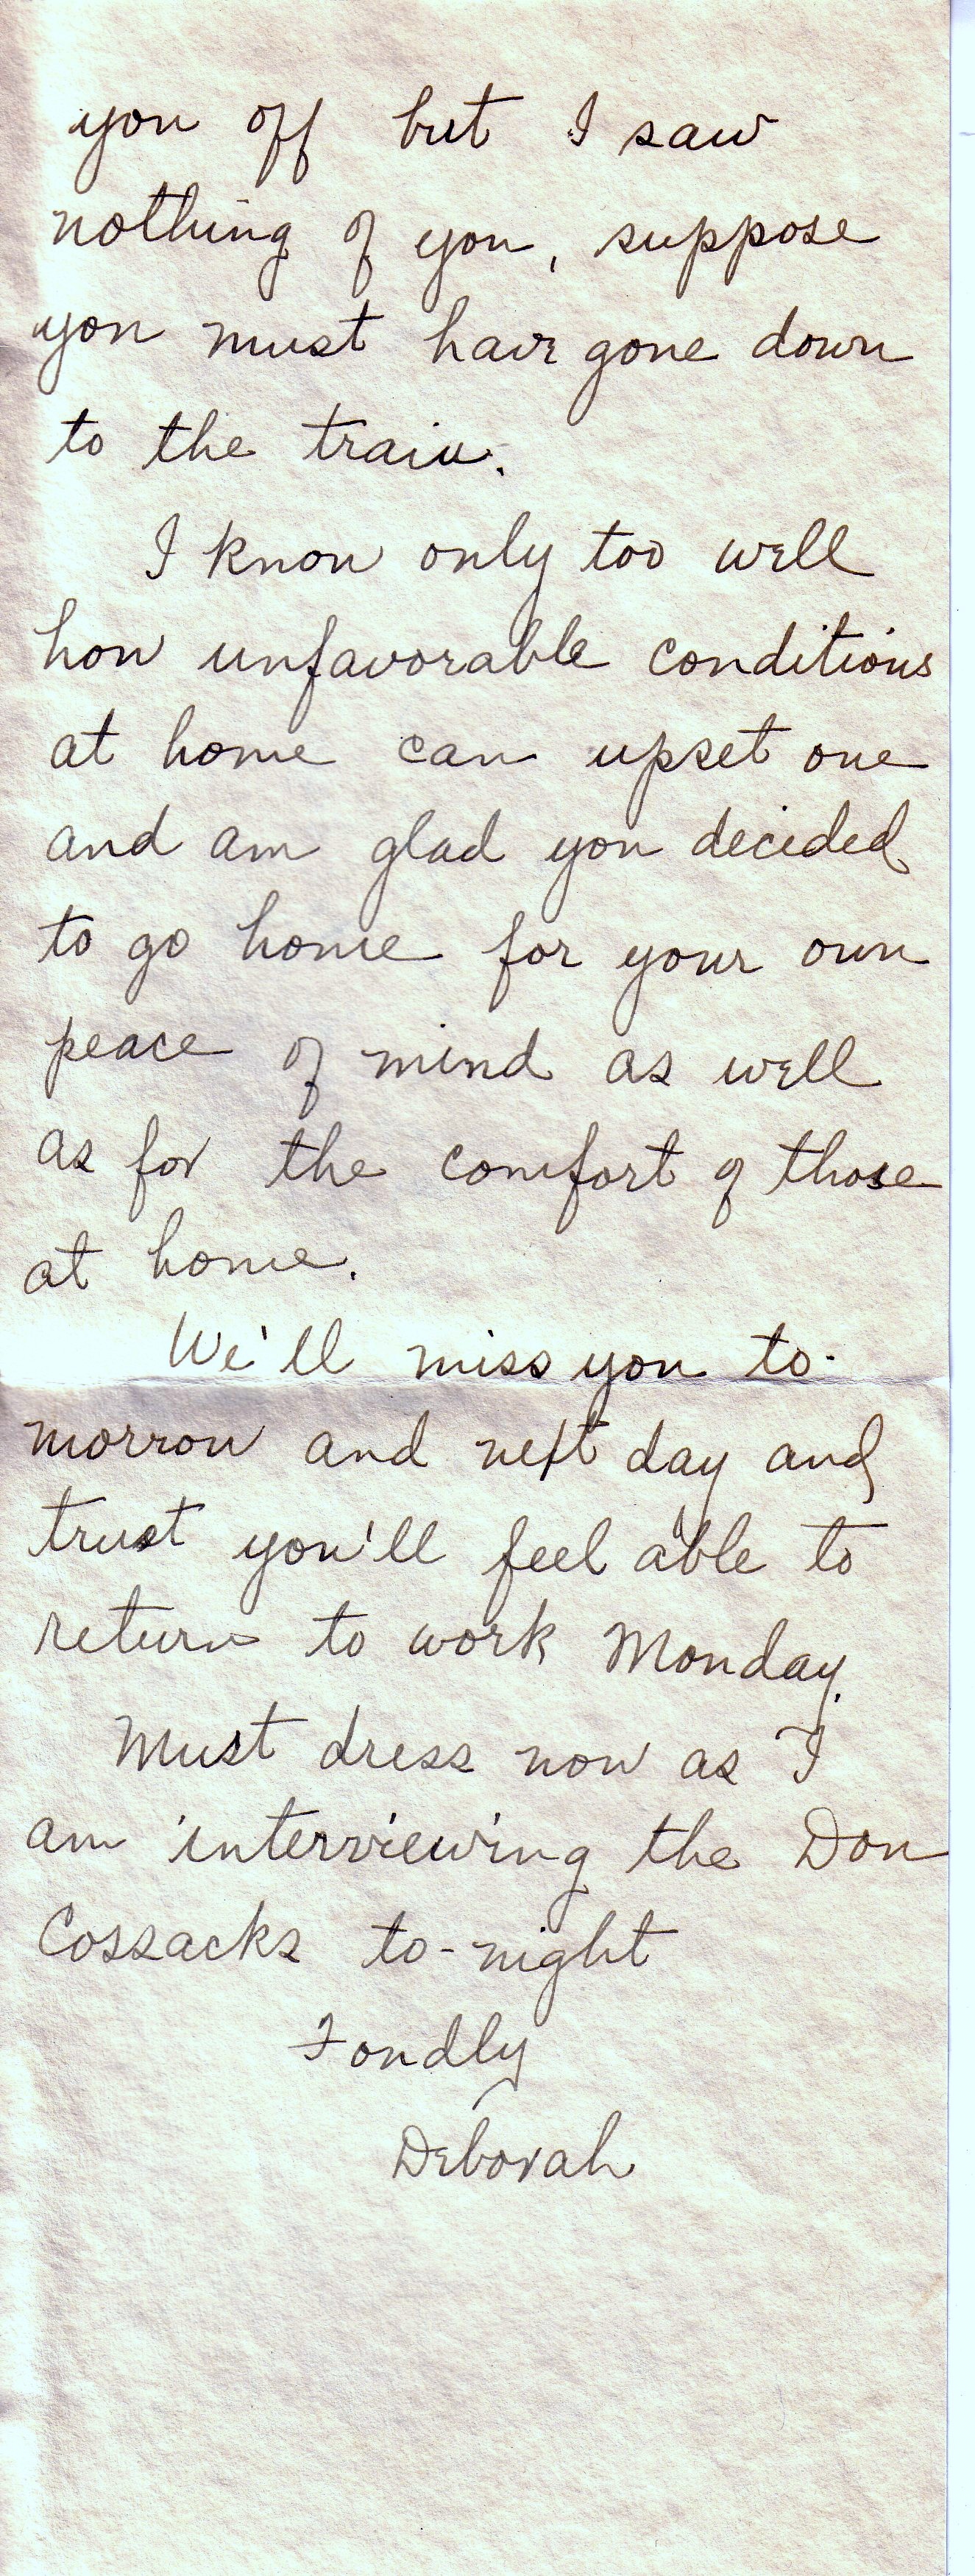 you off but I saw
nothing of you, suppose
you must have gone down
to the train.
I know only too well
how unfavorable conditions
at home can upset one
and am glad you decided
to go home for your own
peace of mind as well
as for the comfort of those
at home.
We'll miss you to-
morrow and next day and
trust you'll feel able to
return to work Monday.
Must dress now as I
am interviewing the Don
Cossacks to-night
Fondly
Deborah